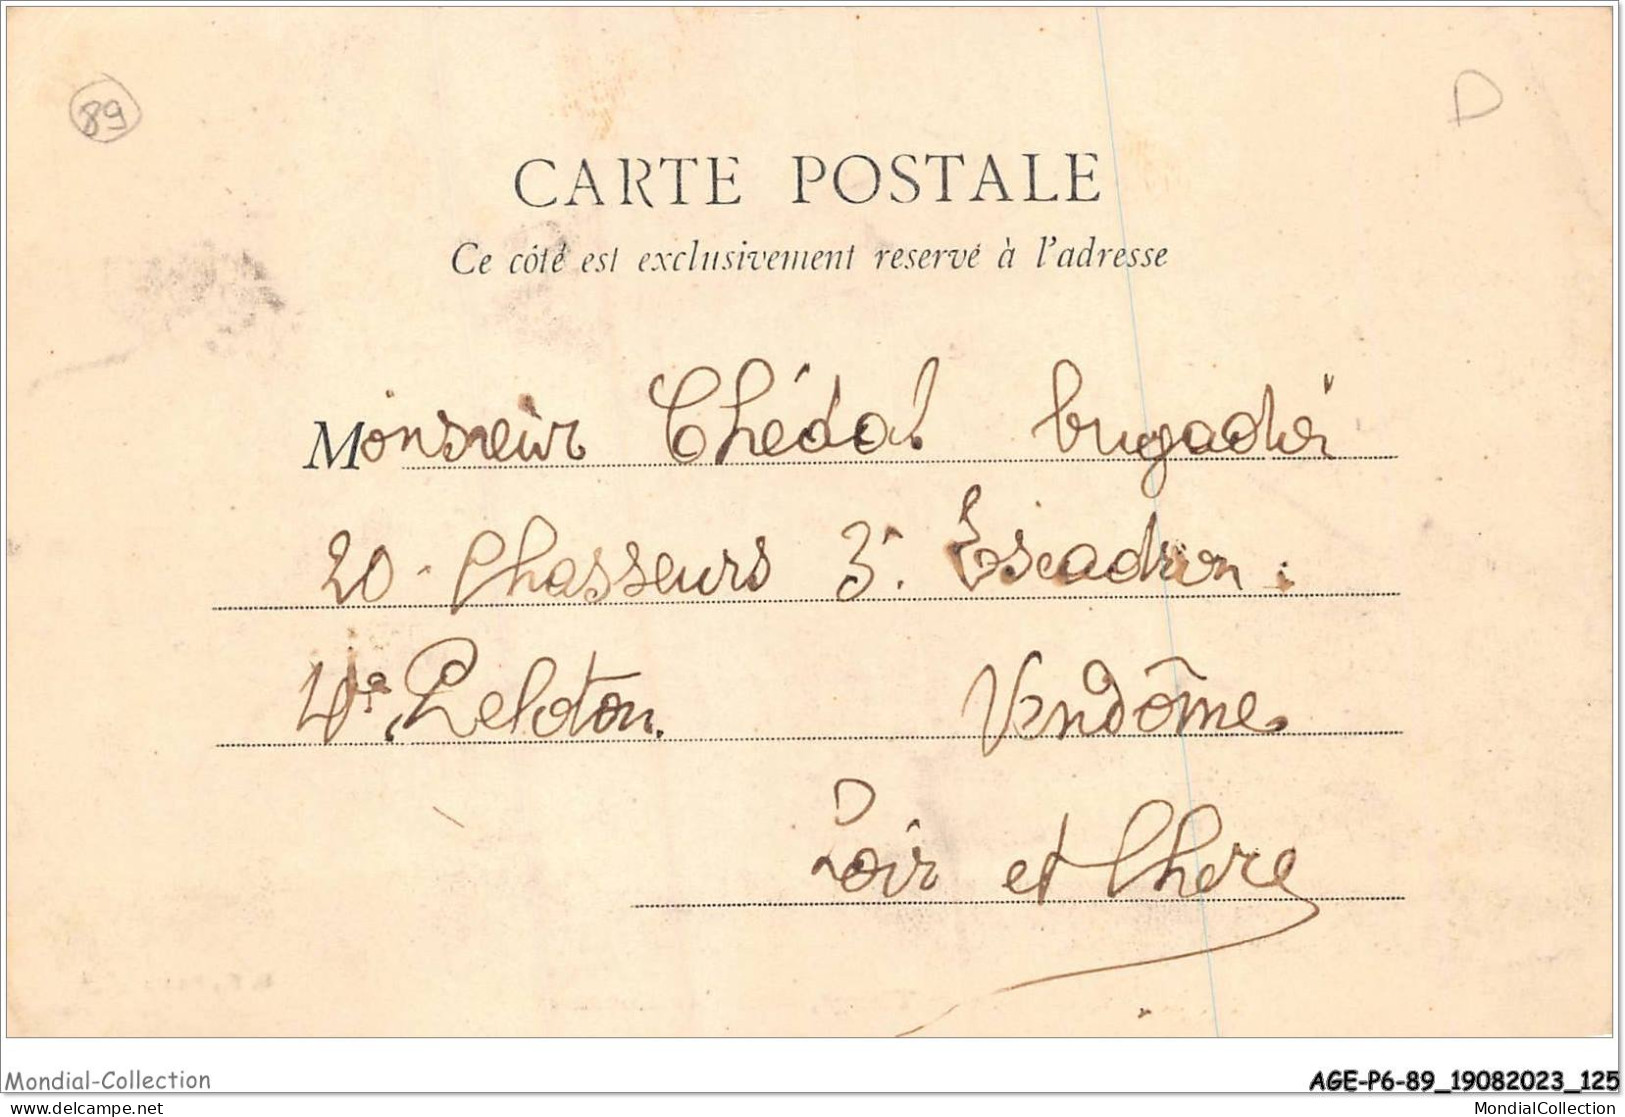 89
D
CARTE POSTALE
Ce côté est exclusivement reservé à l'adresse
Monsieur Chédal brigadier
20 - Chasseurs 3e. Escadron.
4e. Peloton. Vendôme.
Loir et Chere
Mondial-Collection
AGE-P6-89_19082023_125
delcampe.net
MondialCollection